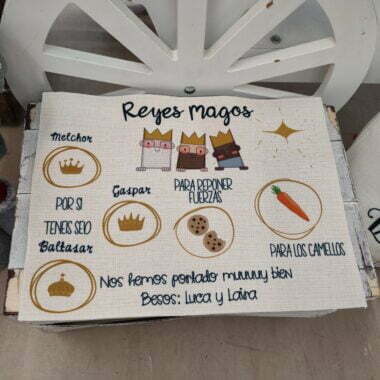 Reyes Magos
Melchor
POR SI
TENEIS SED
Gaspar
Baltasar
PARA REPONER
FUERZAS
PARA LOS CAMELLOS
Nos hemos portado muuuuy bien
Besos: Luca y Laira